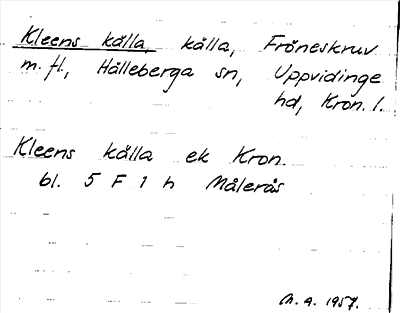 Kleens källa, källa, Fröneskruv
m. fl., Hälleberga sn, Uppvidinge
hd, Kron. l.
Kleens källa ek Kron.
bl. 5 F 1 h Målerås
M. A. 1957.